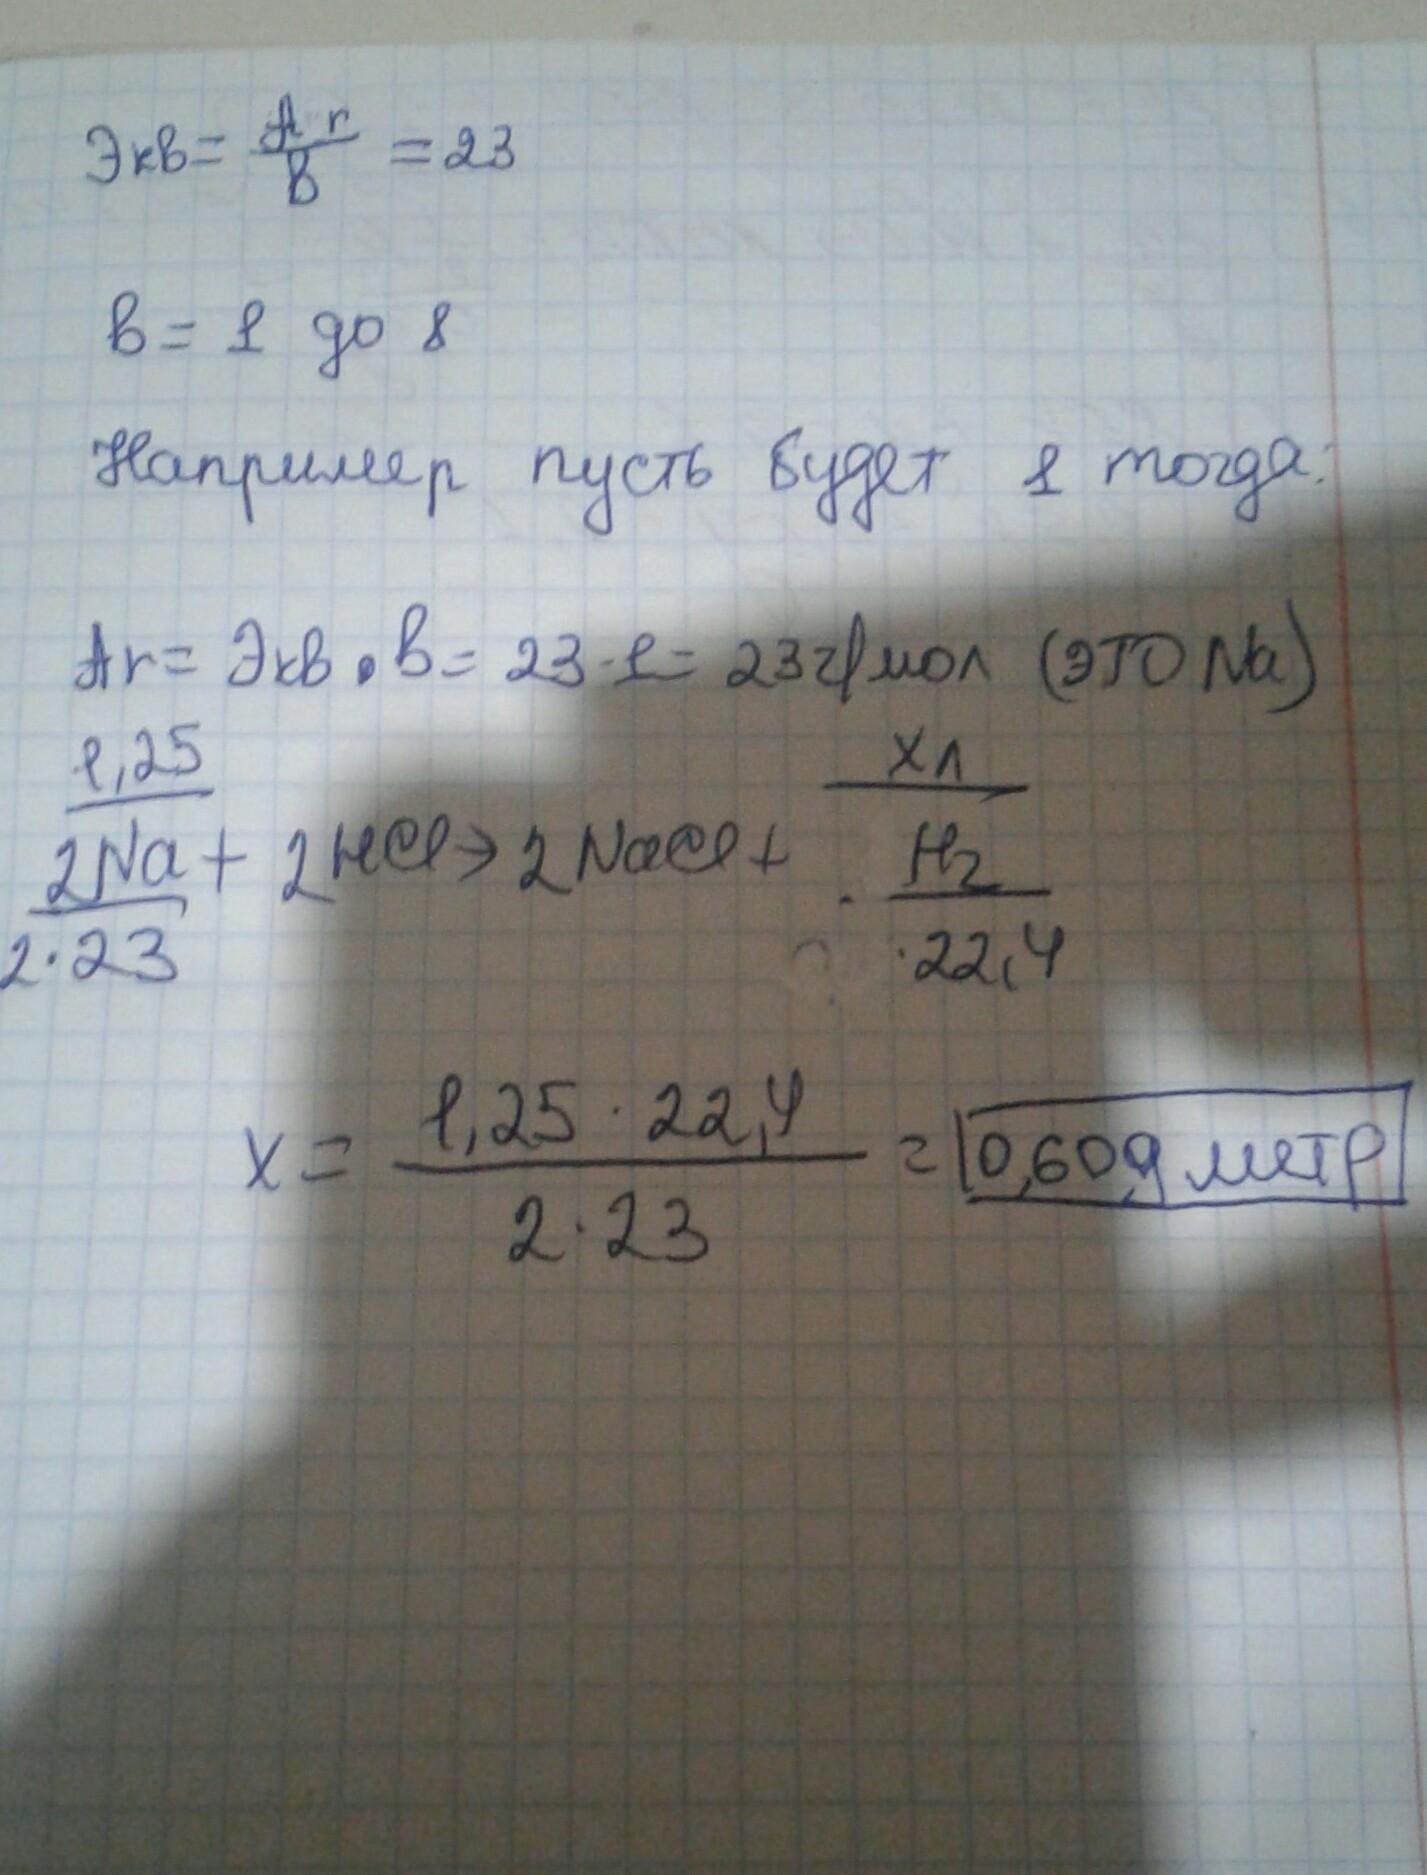 Экв = Ar/В = 23
В = 1 до 8
Например пусть будет 1 тогда:
Ar = Экв • В = 23 · 1 = 23 г/мол (ЭТО Na)
1,25 xл
2Na + 2HCl → 2NaCl + H₂
2·23 ·22,4
x = 1,25 · 22,4 / 2 · 23 = 0,609 метр